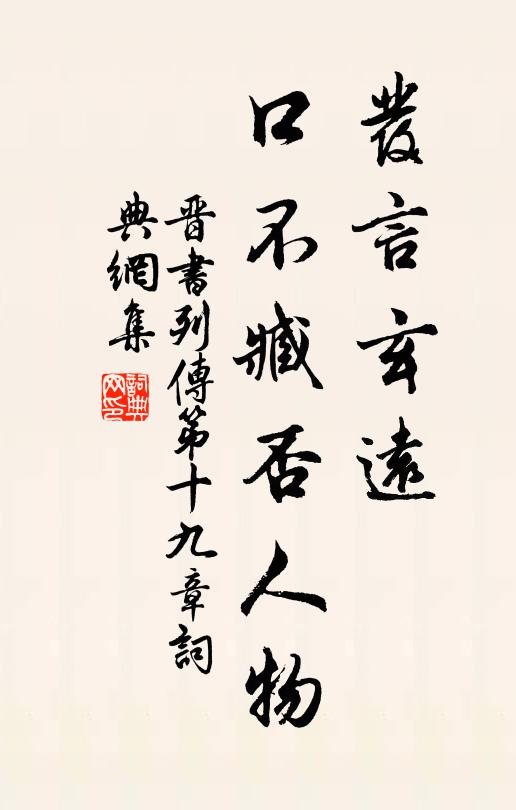 發言玄遠
口不臧否人物
晋書列傳第十九章詞
典網集
詞典網印